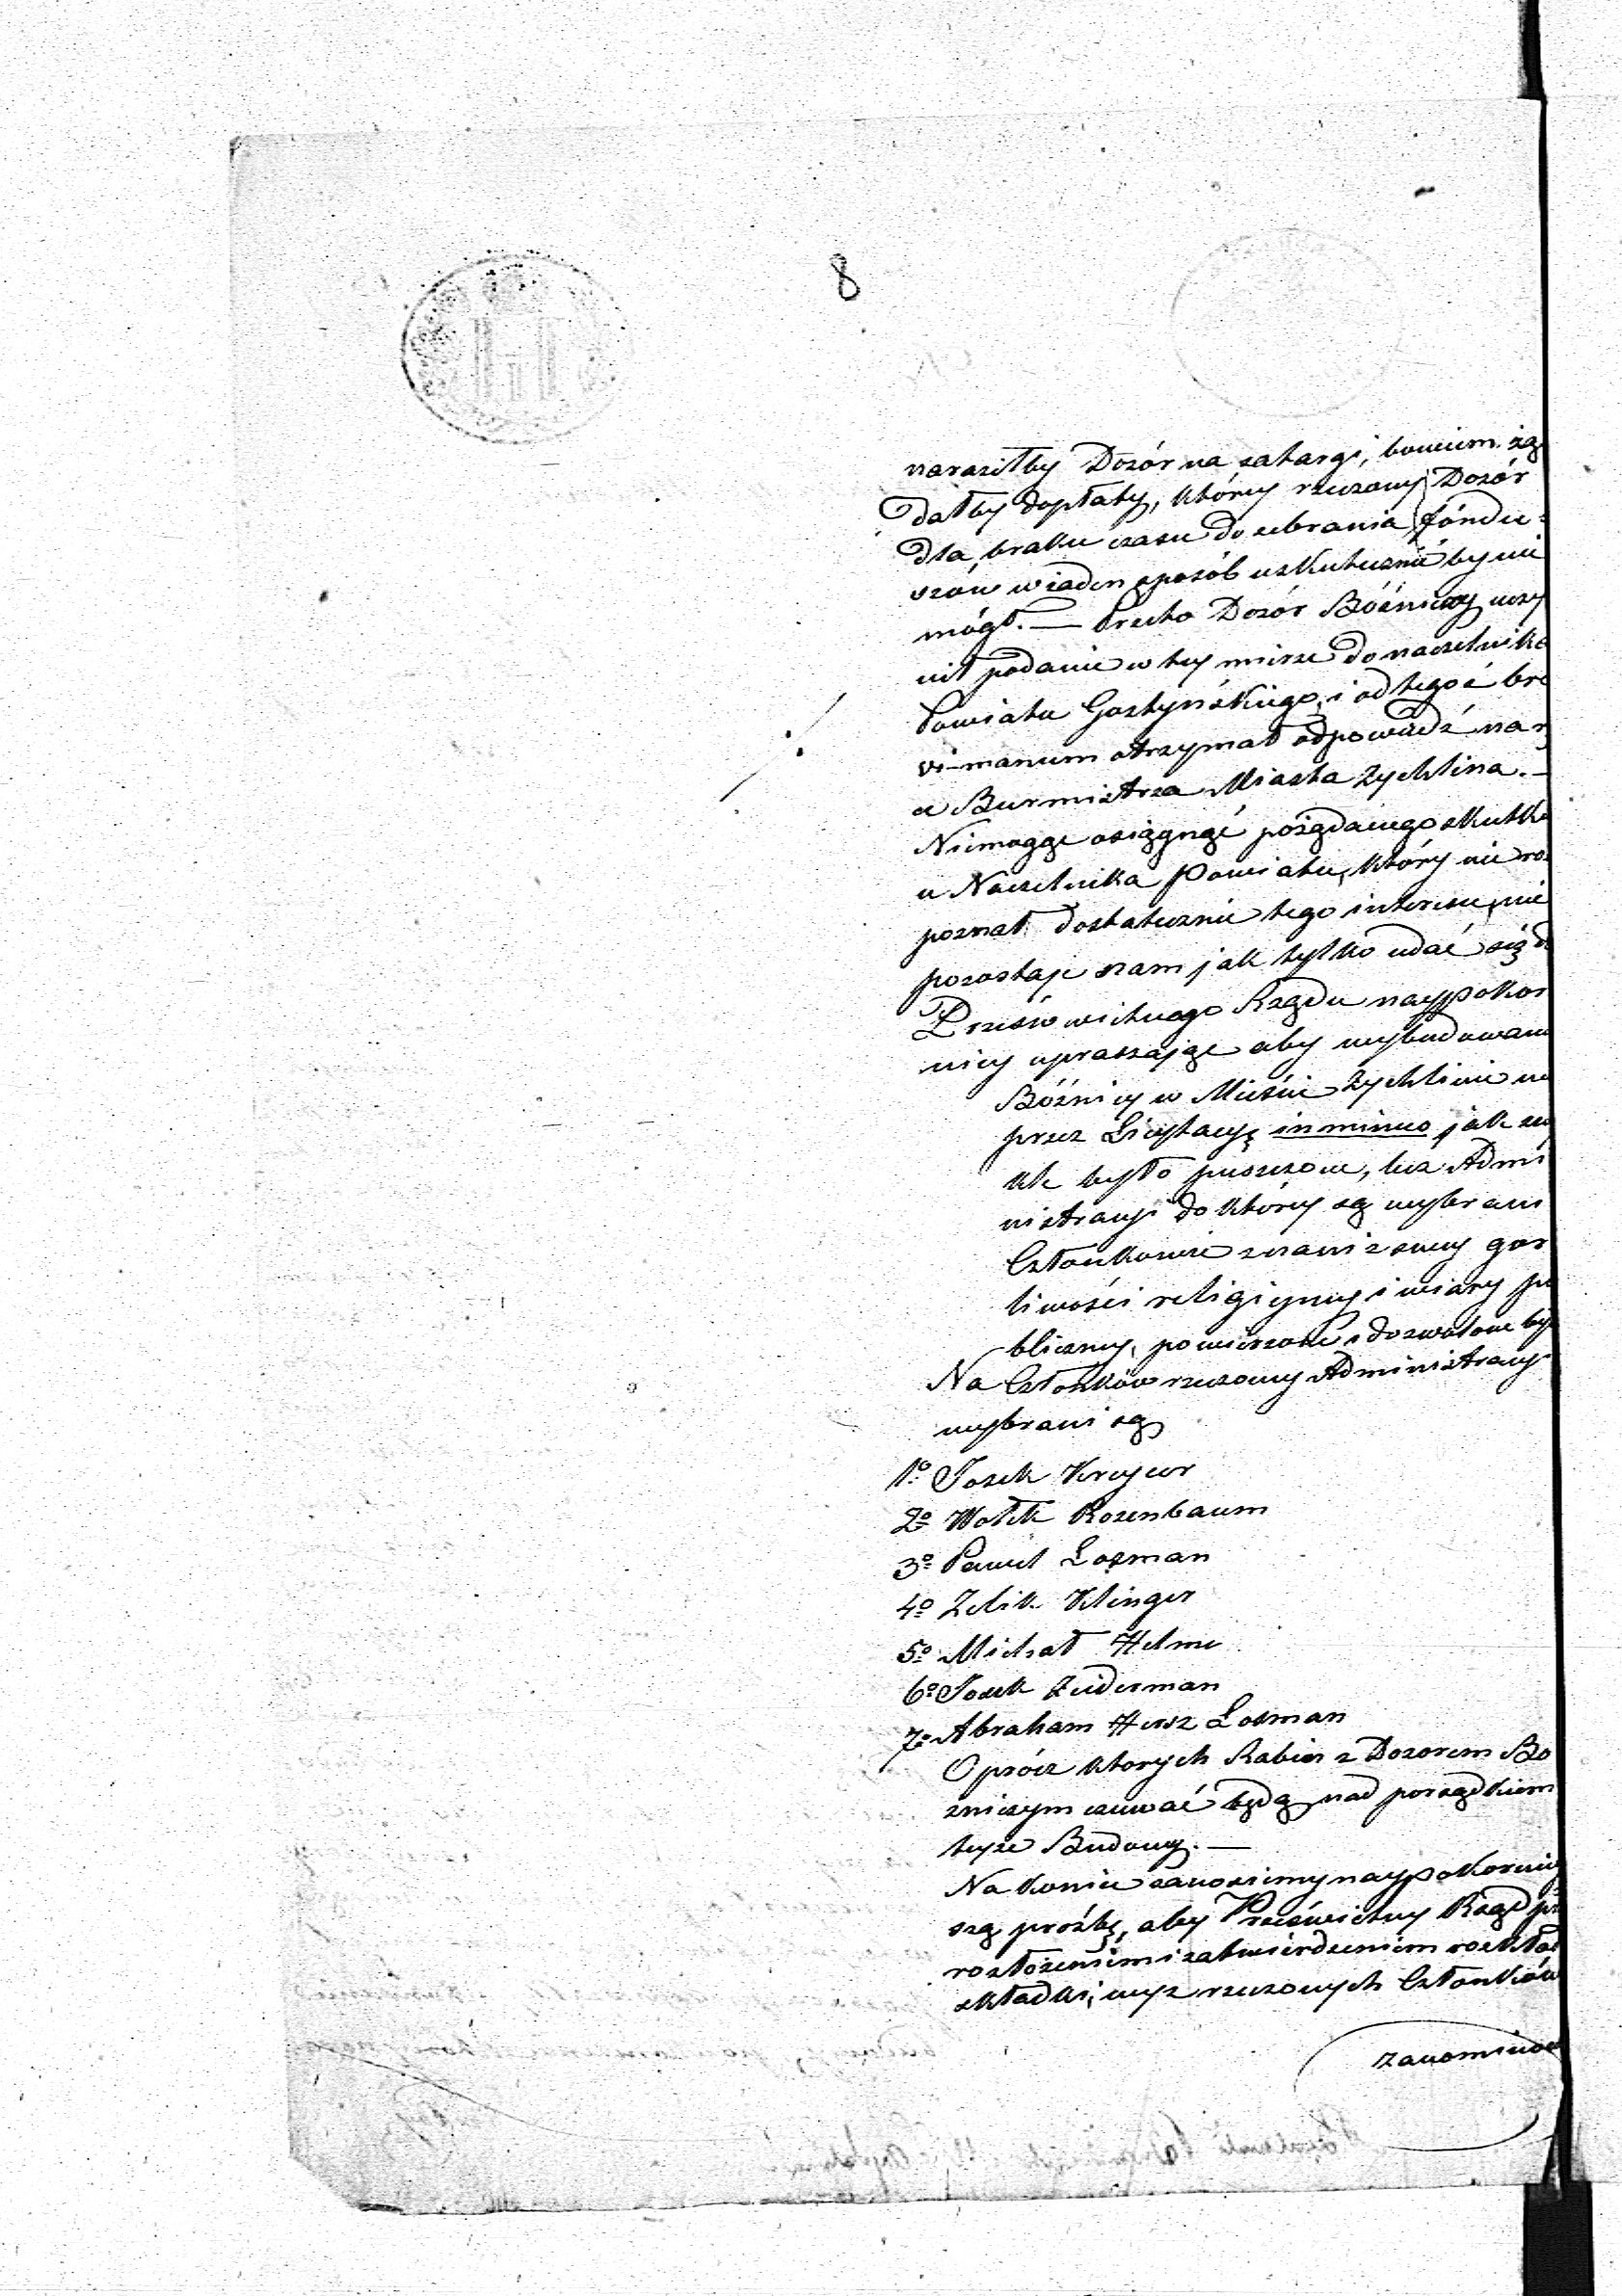 8
naraziłby Dozór na zatargi, bowiem żą
dałby dopłaty, któréy rzeczony Dozór
dla braku czasu do zebrania fóndu-
szów w żaden sposób uskutecznić by nie
mógł. — Przeto Dozór Bóżniczy uczy
nił podanie w téy mierze do naczelnika
Powiatu Gostyńskiego, i od tegoż bre
vi-manum otrzymał odpowiedź na rę
ce Burmistrza Miasta Żychlina. —
Niemogąc osiągnąć pożądanego skutku
u Naczelnika Powiatu, który nie roz
poznał dostatecznie tego interesu, nie
pozostaje nam jak tylko udać się d
Prześwietnego Rządu naypokor
niey upraszając aby wybudowanie
Bóżnicy w Mieście Żychlinie nie
przez Licytacyę in minus jak zwy
kle było puszczone, lecz Admi
nistracyi do któréy są wybrani
Członkowie znani z swey gor
liwości religiyney i wiary pu
bliczney, powierzone i dozwolone by
Na Członków rzeczoney Administracyi
wybrani są
1º Josek Kryger
2º Wolek Rozenbaum
3º Pawel Lozman
4º Zelik Klinger
5º Michał Helme
6º Josek Zeiderman
7º Abraham Hersz Losman
Oprócz ktorych Rabin z Dozorem Bo
żniczym czuwać będą nad porządkiem
teyże Budowy. —
Na koniec zanosimy naypokorniey
szą prośbę, aby Prześwietny Rząd prz
rozłożeniem i zatwierdzeniem rozkład
składki, wyż rzeczonych Członków
zanomino